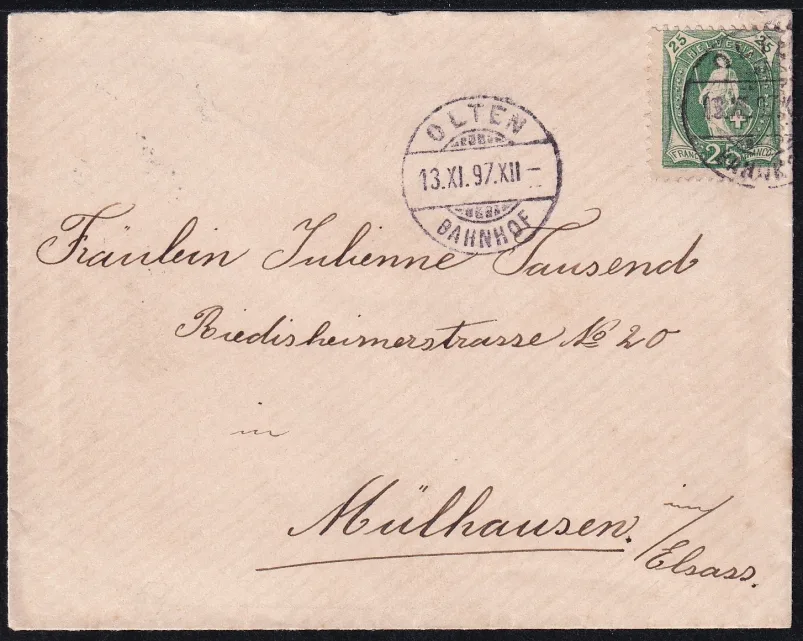 25 HELVETIA 25
FRANCO 25 FRANCO
OLTEN
13.XI.97.XII-
BAHNHOF
Fräulein Julienne Tausend
Riedisheimerstrasse No 20
in
Mülhausen.
im/Elsass.